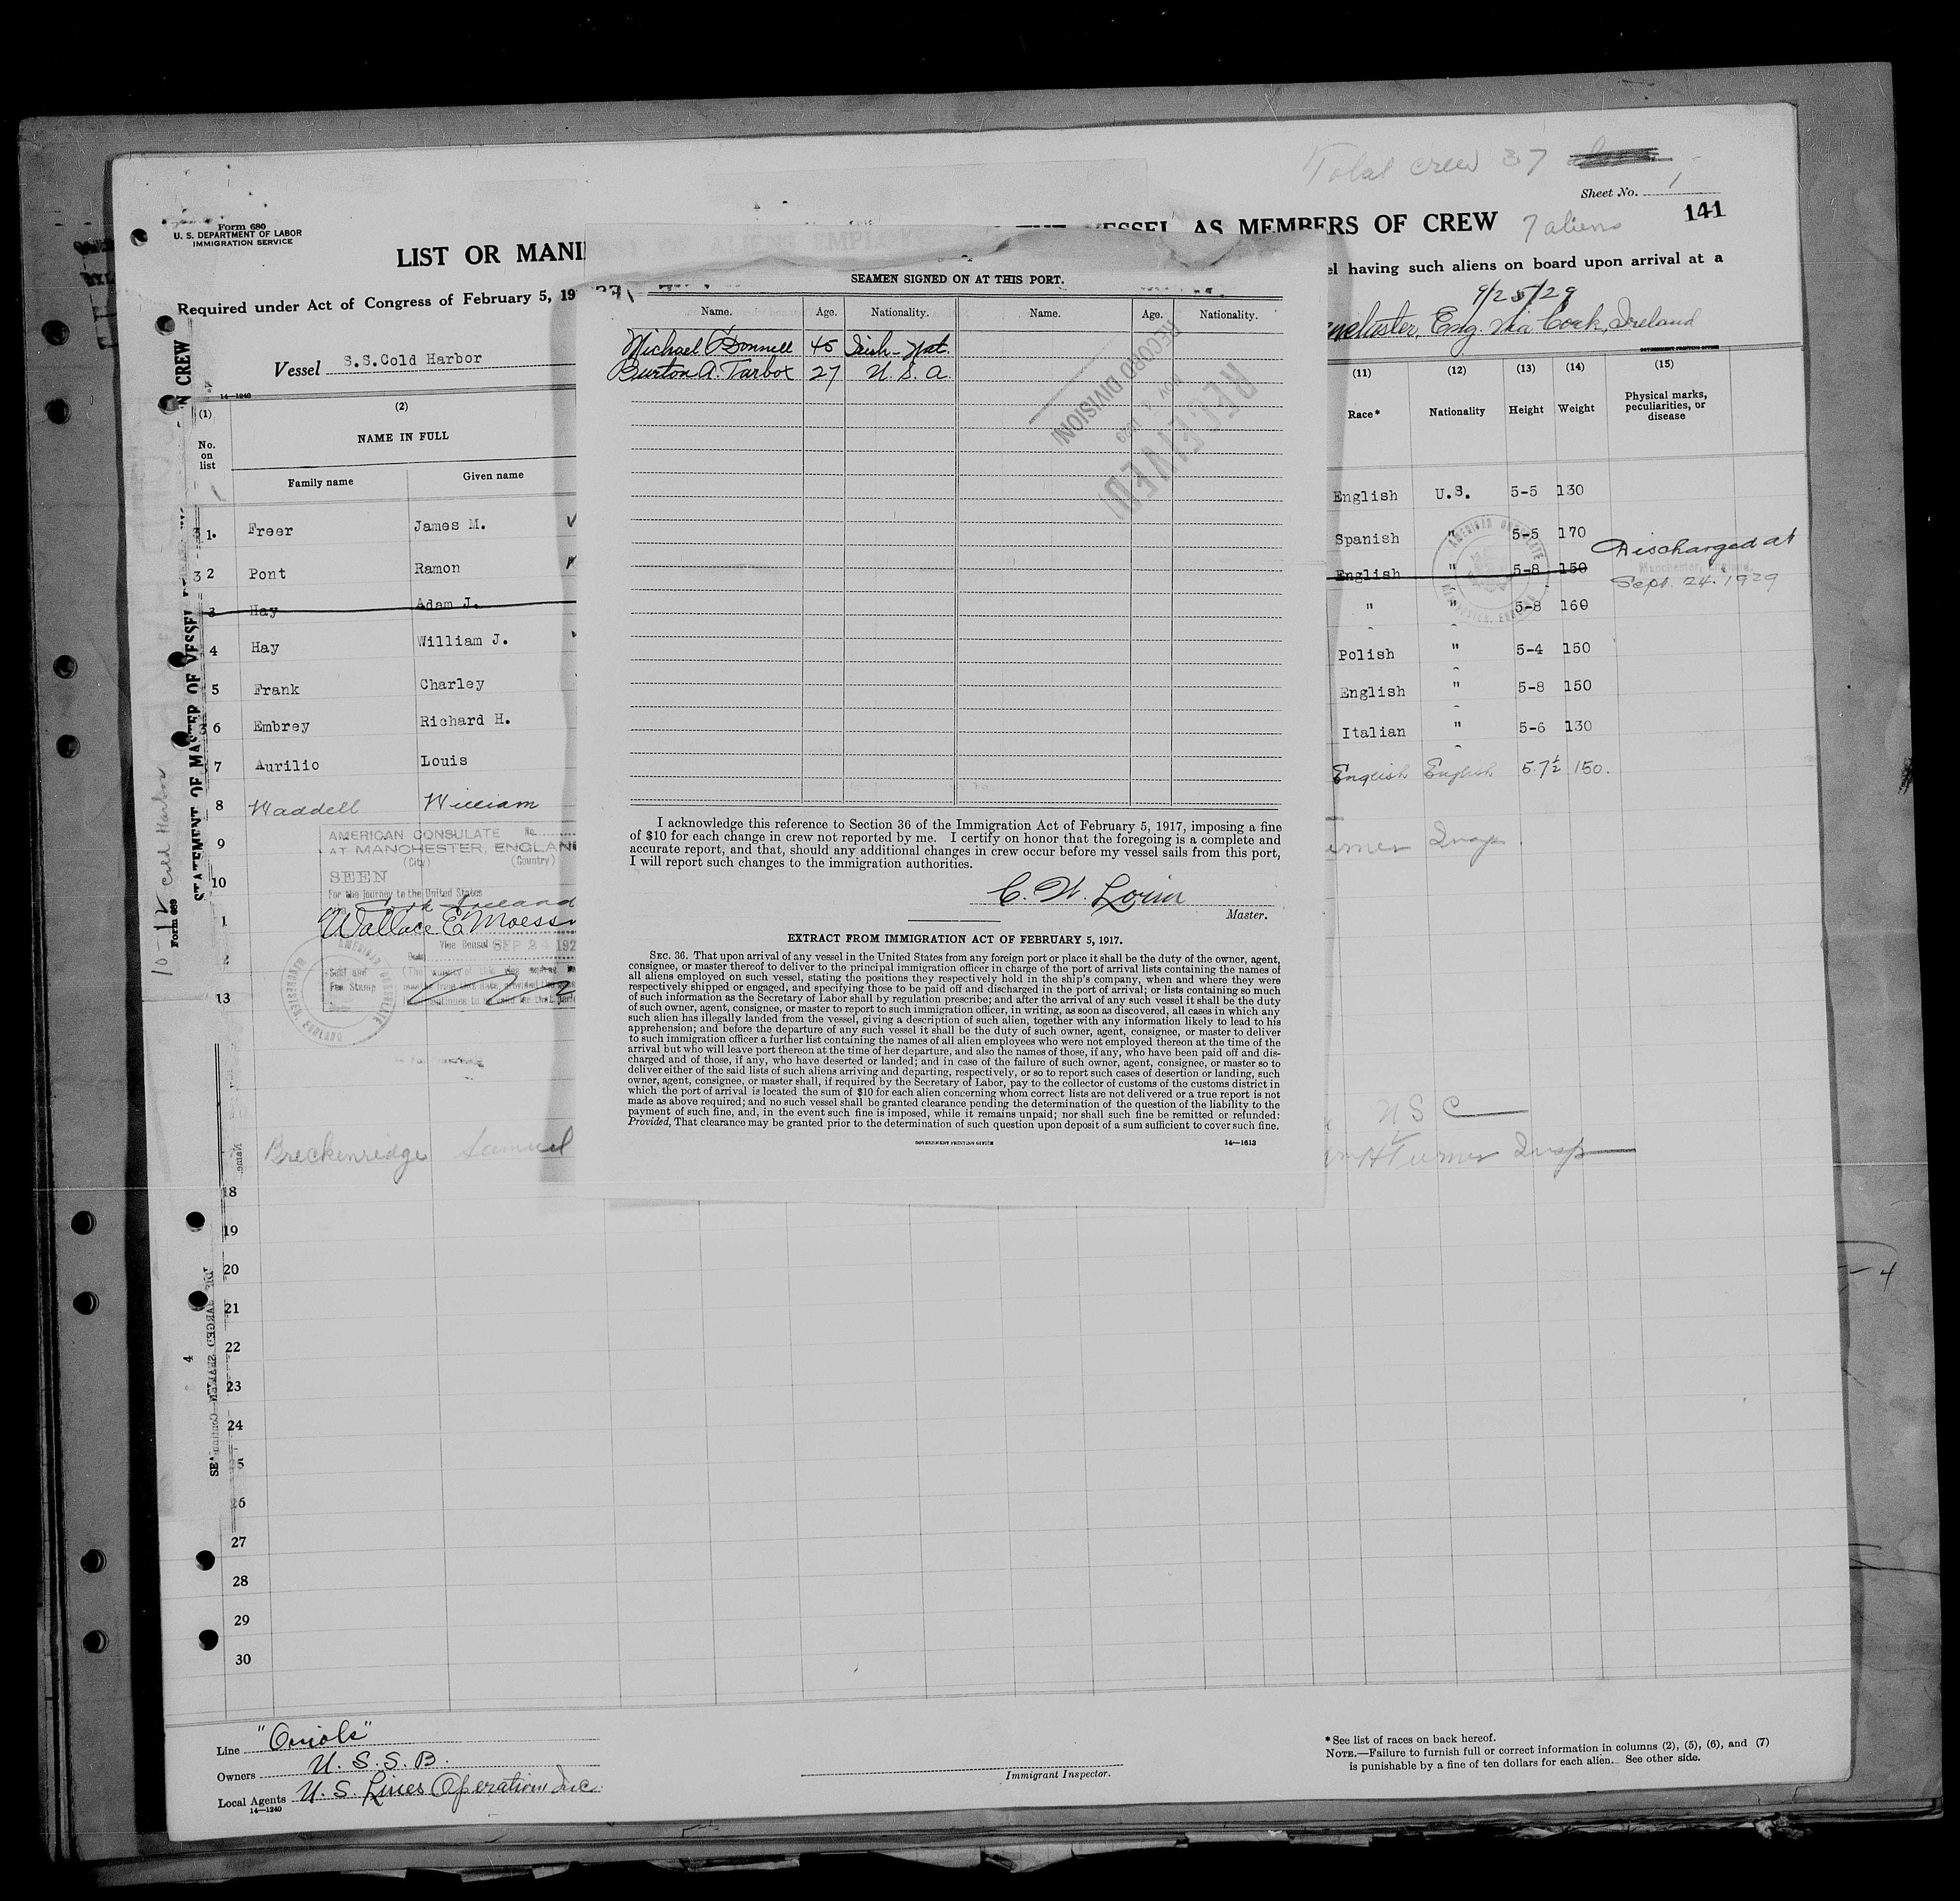 Total crew 37
Sheet No. 1
Form 680
U. S. DEPARTMENT OF LABOR
IMMIGRATION SERVICE
LIST OR MANI
VESSEL AS MEMBERS OF CREW
7 aliens
141
Required under Act of Congress of February 5, 19
el having such aliens on board upon arrival at a
9/25/29
Vessel S.S.Cold Harbor
Eng. via Cork, Ireland
GOVERNMENT PRINTING OFFICE
14—1240
(1) (2) (11) (12) (13) (14) (15)
No. on list
NAME IN FULL
Race* Nationality Height Weight Physical marks, peculiarities, or disease
Family name Given name
1. Freer James M. English U.S. 5-5 130
2 Pont Ramon Spanish " 5-5 170
3 Hay Adam J. English " 5-8 150 Discharged at
Manchester, England,
Sept. 24. 1929
4 Hay William J. " " 5-8 160
5 Frank Charley Polish " 5-4 150
6 Embrey Richard H. English " 5-8 150
7 Aurilio Louis Italian " 5-6 130
8 Waddell William English English 5.7½ 150.
9
10
13
AMERICAN CONSULATE No.
AT MANCHESTER, ENGLAN
(City) (Country)
SEEN
For the journey to the United States
Cork Ireland
Wallace E. Moess
Vice Consul SEP 24 192
Seal and
Fee Stamp
AMERICAN CONSULATE
MANCHESTER, ENGLAND
Insp.
U S C
Breckenridge Samuel
Turner Insp
18
19
20
21
22
23
24
5
26
27
28
29
30
STATEMENT OF MASTER OF VESSEL
N CREW
Form 689
10-12 Cold Harbor
4
SEAMEN SIGNED ON AT THIS PORT.
Name. Age. Nationality. Name. Age. Nationality.
Michael O'Donnell 45 Irish-Nat.
Burton A. Tarbox 27 U. S. A.
RECEIVED
RECORD DIVISION
I acknowledge this reference to Section 36 of the Immigration Act of February 5, 1917, imposing a fine
of $10 for each change in crew not reported by me. I certify on honor that the foregoing is a complete and
accurate report, and that, should any additional changes in crew occur before my vessel sails from this port,
I will report such changes to the immigration authorities.
Master.
EXTRACT FROM IMMIGRATION ACT OF FEBRUARY 5, 1917.
SEC. 36. That upon arrival of any vessel in the United States from any foreign port or place it shall be the duty of the owner, agent,
consignee, or master thereof to deliver to the principal immigration officer in charge of the port of arrival lists containing the names of
all aliens employed on such vessel, stating the positions they respectively hold in the ship's company, when and where they were
respectively shipped or engaged, and specifying those to be paid off and discharged in the port of arrival; or lists containing so much
of such information as the Secretary of Labor shall by regulation prescribe; and after the arrival of any such vessel it shall be the duty
of such owner, agent, consignee, or master to report to such immigration officer, in writing, as soon as discovered, all cases in which any
such alien has illegally landed from the vessel, giving a description of such alien, together with any information likely to lead to his
apprehension; and before the departure of any such vessel it shall be the duty of such owner, agent, consignee, or master to deliver
to such immigration officer a further list containing the names of all alien employees who were not employed thereon at the time of the
arrival but who will leave port thereon at the time of her departure, and also the names of those, if any, who have been paid off and dis-
charged and of those, if any, who have deserted or landed; and in case of the failure of such owner, agent, consignee, or master so to
deliver either of the said lists of such aliens arriving and departing, respectively, or so to report such cases of desertion or landing, such
owner, agent, consignee, or master shall, if required by the Secretary of Labor, pay to the collector of customs of the customs district in
which the port of arrival is located the sum of $10 for each alien concerning whom correct lists are not delivered or a true report is not
made as above required; and no such vessel shall be granted clearance pending the determination of the question of the liability to the
payment of such fine, and, in the event such fine is imposed, while it remains unpaid; nor shall such fine be remitted or refunded:
Provided, That clearance may be granted prior to the determination of such question upon deposit of a sum sufficient to cover such fine.
GOVERNMENT PRINTING OFFICE 14—1613
Line "Oriole"
Owners U. S. S. B.
Local Agents U. S. Lines Operations Inc.
14—1240
Immigrant Inspector.
* See list of races on back hereof.
NOTE.—Failure to furnish full or correct information in columns (2), (5), (6), and (7)
is punishable by a fine of ten dollars for each alien. See other side.